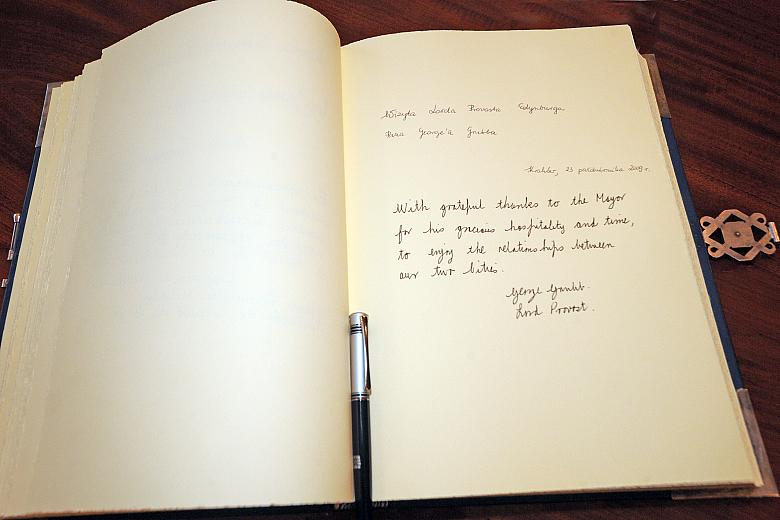 Wizyta Lorda Provosta Edynburga
Pana George'a Grubba
Kraków, 23 października 2009 r.
With grateful thanks to the Mayor
for his gracious hospitality and time,
to enjoy the relationships between
our two Cities.
George Grubb.
Lord Provost.